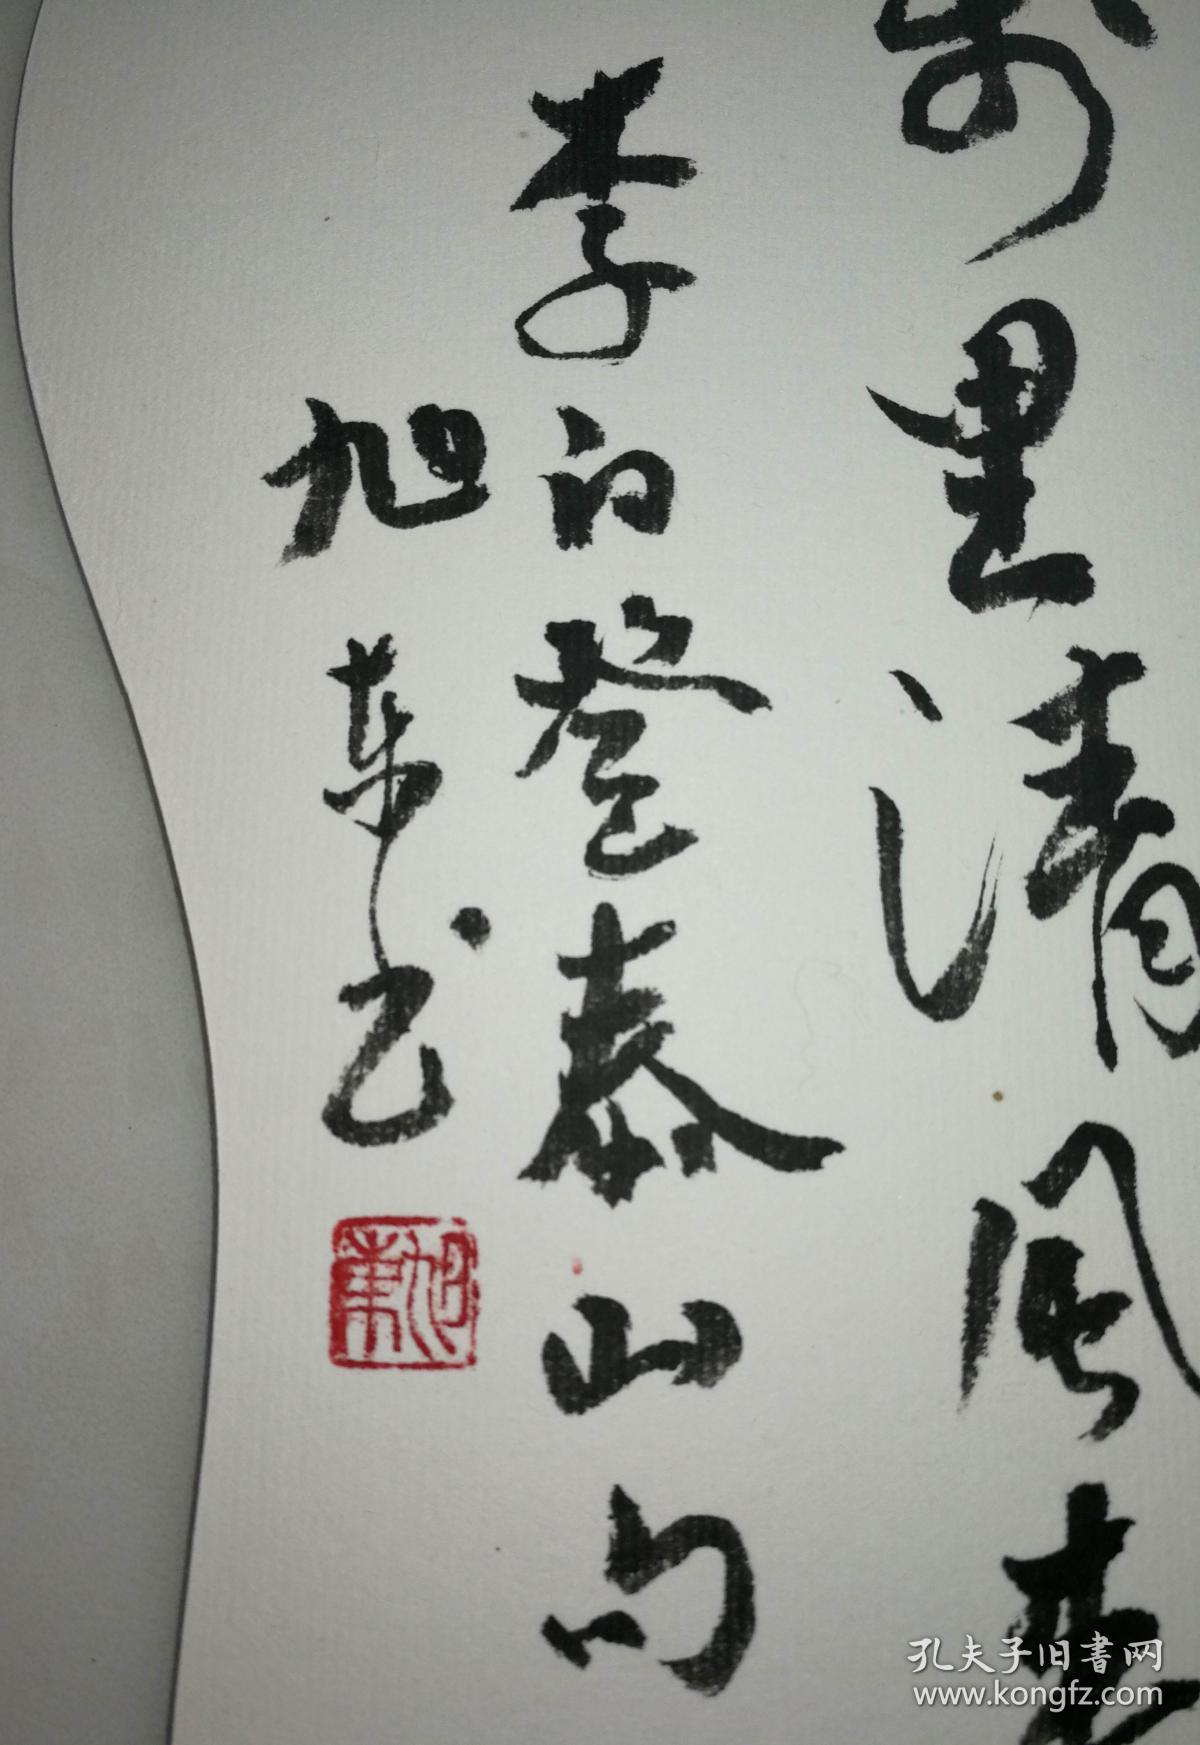 万里清风来
李白登泰山句
旭东书
旭东
孔夫子旧书网
www.kongfz.com